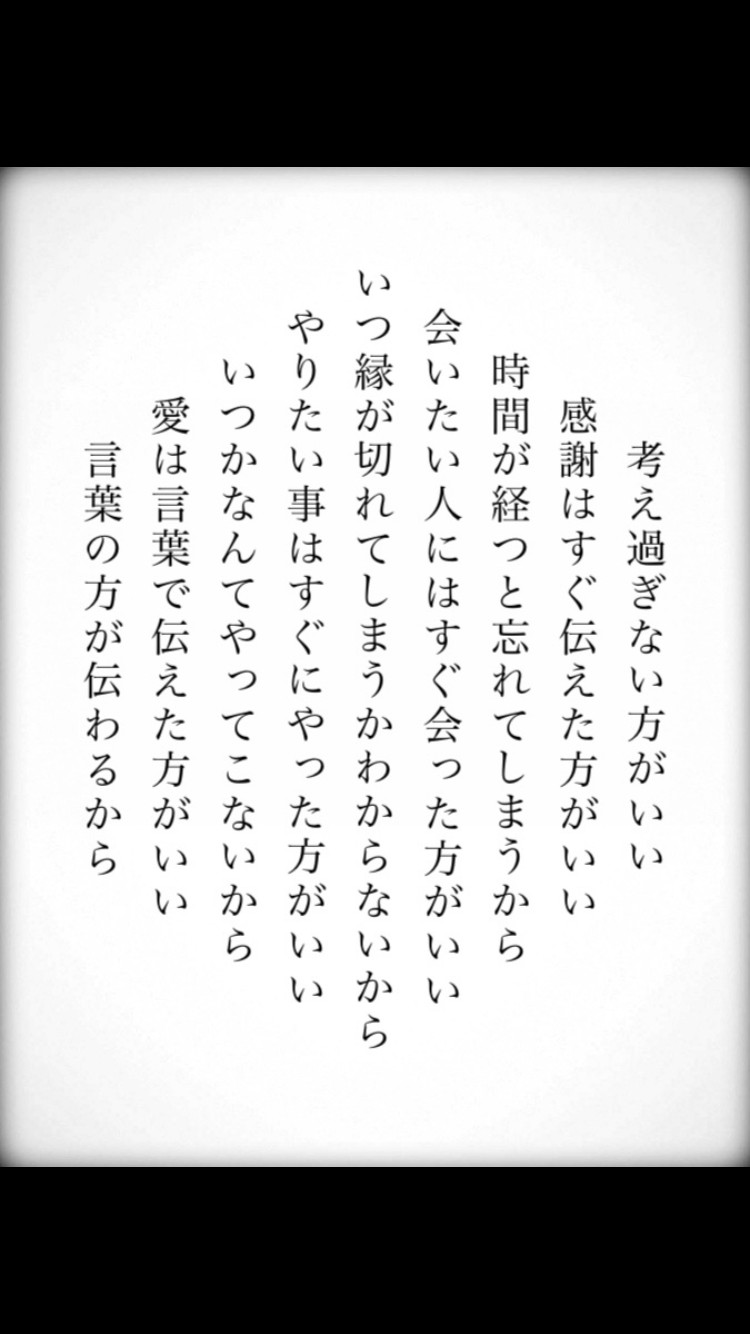 考え過ぎない方がいい
感謝はすぐ伝えた方がいい
時間が経つと忘れてしまうから
会いたい人にはすぐ会った方がいい
いつ縁が切れてしまうかわからないから
やりたい事はすぐにやった方がいい
いつかなんてやってこないから
愛は言葉で伝えた方がいい
言葉の方が伝わるから